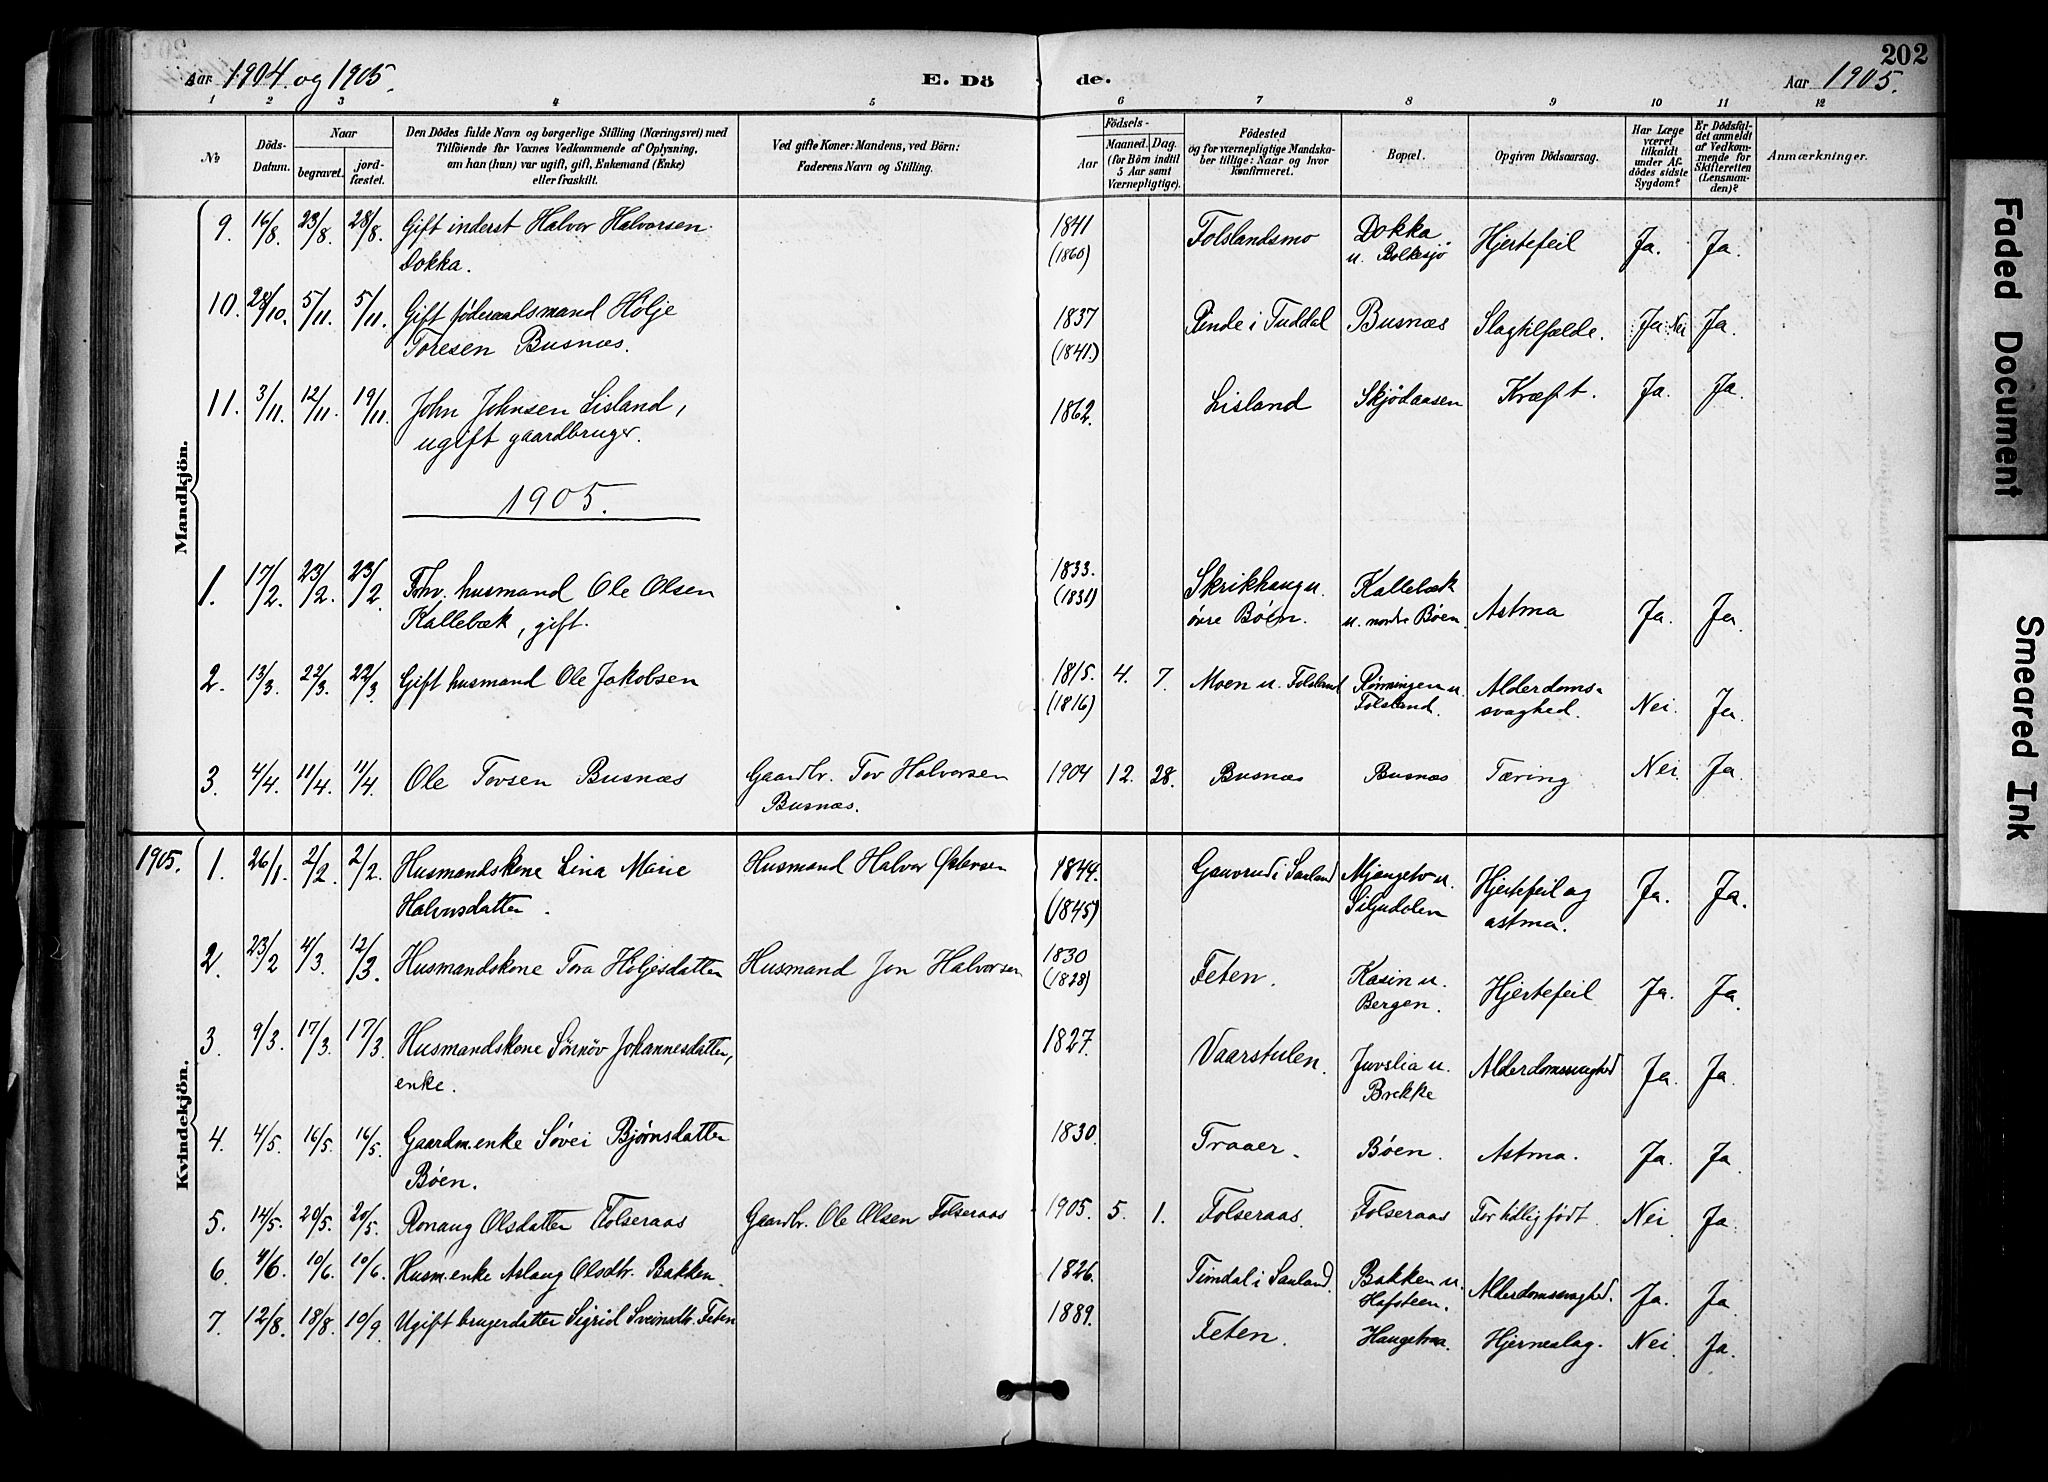 202
Aar 1904 og 1905.
E. Dö
de.
Aar 1905.
1 2 3 4 5 6 7 8 9 10 11 12
No
Döds-Datum.
Naar
begravet.
jord-fæstet.
Den Dödes fulde Navn og borgerlige Stilling (Næringsvei) med
Tilföiende for Voxnes Vedkommende af Oplysning,
om han (hun) var ugift, gift, Enkemand (Enke)
eller fraskilt.
Ved gifte Koner: Mandens, ved Börn:
Faderens Navn og Stilling.
Födsels-
Aar
Maaned. Dag.
(for Börn indtil
5 Aar samt
Værnepligtige).
Födested
og for værnepligtige Mandska-
ber tillige: Naar og hvor
konfirmeret.
Bopæl.
Opgiven Dödsaarsag.
Har Læge
været
tilkaldt
under Af-
dödes sidste
Sygdom?
Er Dödsfal-
det anmeldt
af Vedkom-
mende for
Skifteretten
(Lensman-
den)?
Anmærkninger.
Mandkjön.
9. 16/8. 23/8. 28/8. Gift inderst Halvor Halvorsen 1841 Folslandsmo Dokka Hjertefeil Ja. Ja.
Dokka. (1860) u. Bolkesjø
10. 28/10. 5/11. 5/11. Gift føderaadsmand Hølje 1837 Rinde i Tuddal Busnæs Slagtilfælde. Ja Nei Ja.
Toresen Busnæs. (1841.)
11. 3/11. 12/11. 19/11. John Johnsen Lisland, 1862. Lisland Skjødaasen Kræft. Ja. Ja.
ugift gaardbruger.
1905.
1. 17/2. 23/2. 23/2. Fhv. husmand Ole Olsen 1833. Skrikhaug u. Kallebæk Astma Ja. Ja.
Kallebæk, gift. (1831) øvre Bøen. u. nordre Bøen.
2. 13/3. 22/3. 22/3. Gift husmand Ole Jakobsen 1815. 4. 7. Moen u. Folsland Rønningen u. Alderdoms-
(1816) Folsland. svaghed. Nei. Ja.
3. 4/4. 11/4. 11/4. Ole Tovsen Busnæs Gaardbr. Tov Halvorsen 1904 12. 28. Busnæs Busnæs Tæring Nei Ja.
Busnæs.
Kvindekjön.
1905. 1. 26/1. 2/2. 2/2. Husmandskone Lina Marie Husmand Halvor Østensen 1844. Gauvrud i Sauland Mjangetv u. Hjertefeil og Ja. Ja.
Halvorsdatter. (1845) Siljudalen astma.
2. 23/2 4/3. 12/3. Husmandskone Tora Høljesdatter Husmand Jon Halvorsen 1830 Feten. Kasin u. Hjertefeil Ja. Ja.
(1828) Bergen.
3. 9/3. 17/3. 17/3. Husmandskone Sønnøv Johannesdatter, 1827. Vaarstulen. Juvslia u. Alderdomssvaghed Ja. Ja.
enke. Brekke
4. 4/5. 16/5. 16/5. Gaardm.enke Søvei Bjørnsdatter 1830. Traaer. Bøen. Astma. Ja. Ja.
Bøen.
5. 14/5. 20/5. 20/5. Ronaug Olsdatter Folseraas Gaardbr. Ole Olsen Folseraas 1905. 5. 1. Folseraas. Folseraas For tidlig født. Nei Ja.
6. 4/6. 10/6. 10/6. Husm.enke Aslaug Olsdtr. Bakken. 1826. Timdal i Sauland. Bakken u. Alderdomssvaghed. Ja. Ja.
Hafsteen.
7. 12/8. 18/8. 10/9. Ugift brugerdatter Sigrid Sveinsdtr. Feten 1889. Feten. Haugetraa. Hjerneslag. Nei Ja.
Faded Document
Smeared Ink